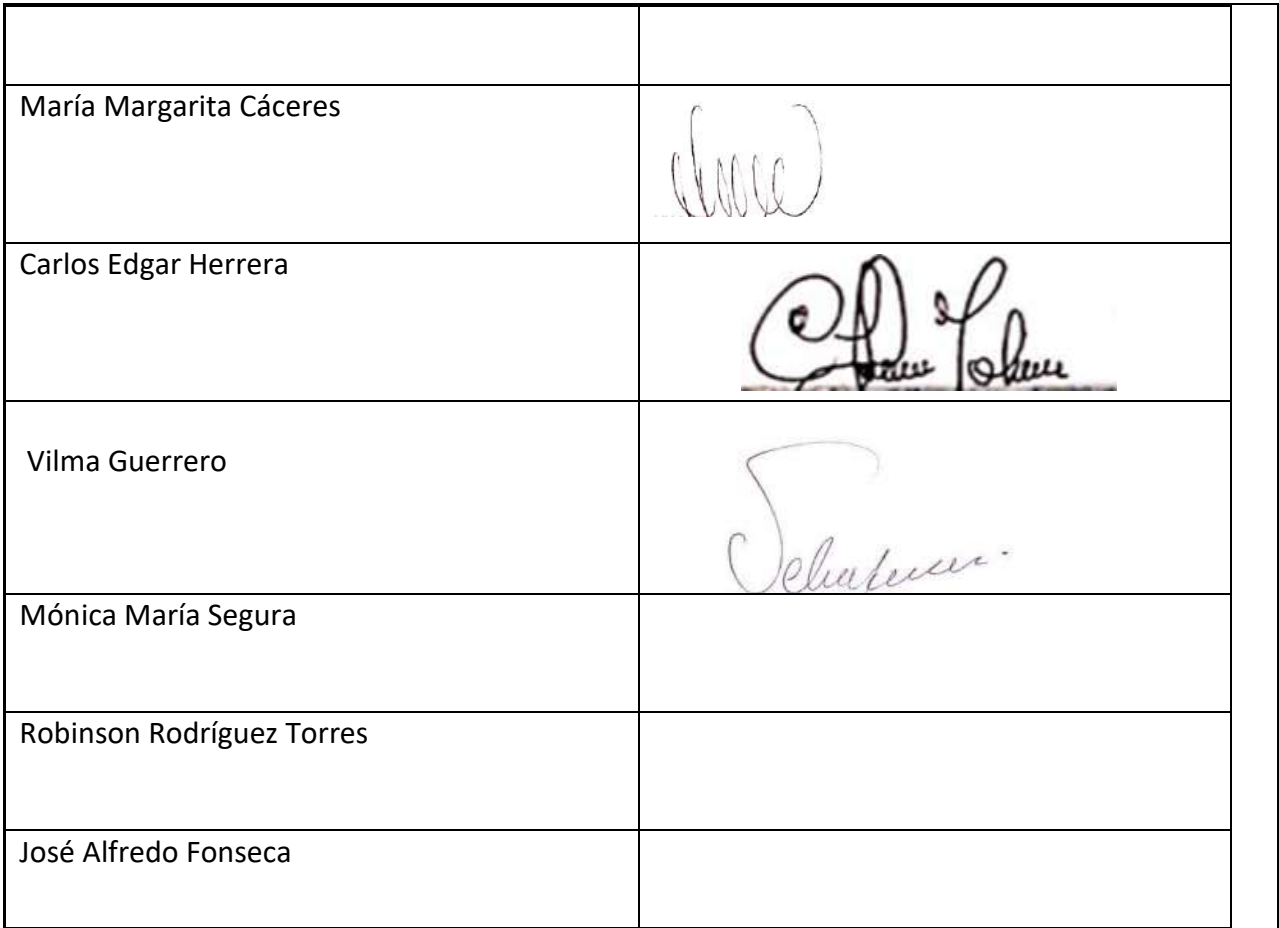 María Margarita Cáceres
Carlos Edgar Herrera
Vilma Guerrero
Mónica María Segura
Robinson Rodríguez Torres
José Alfredo Fonseca